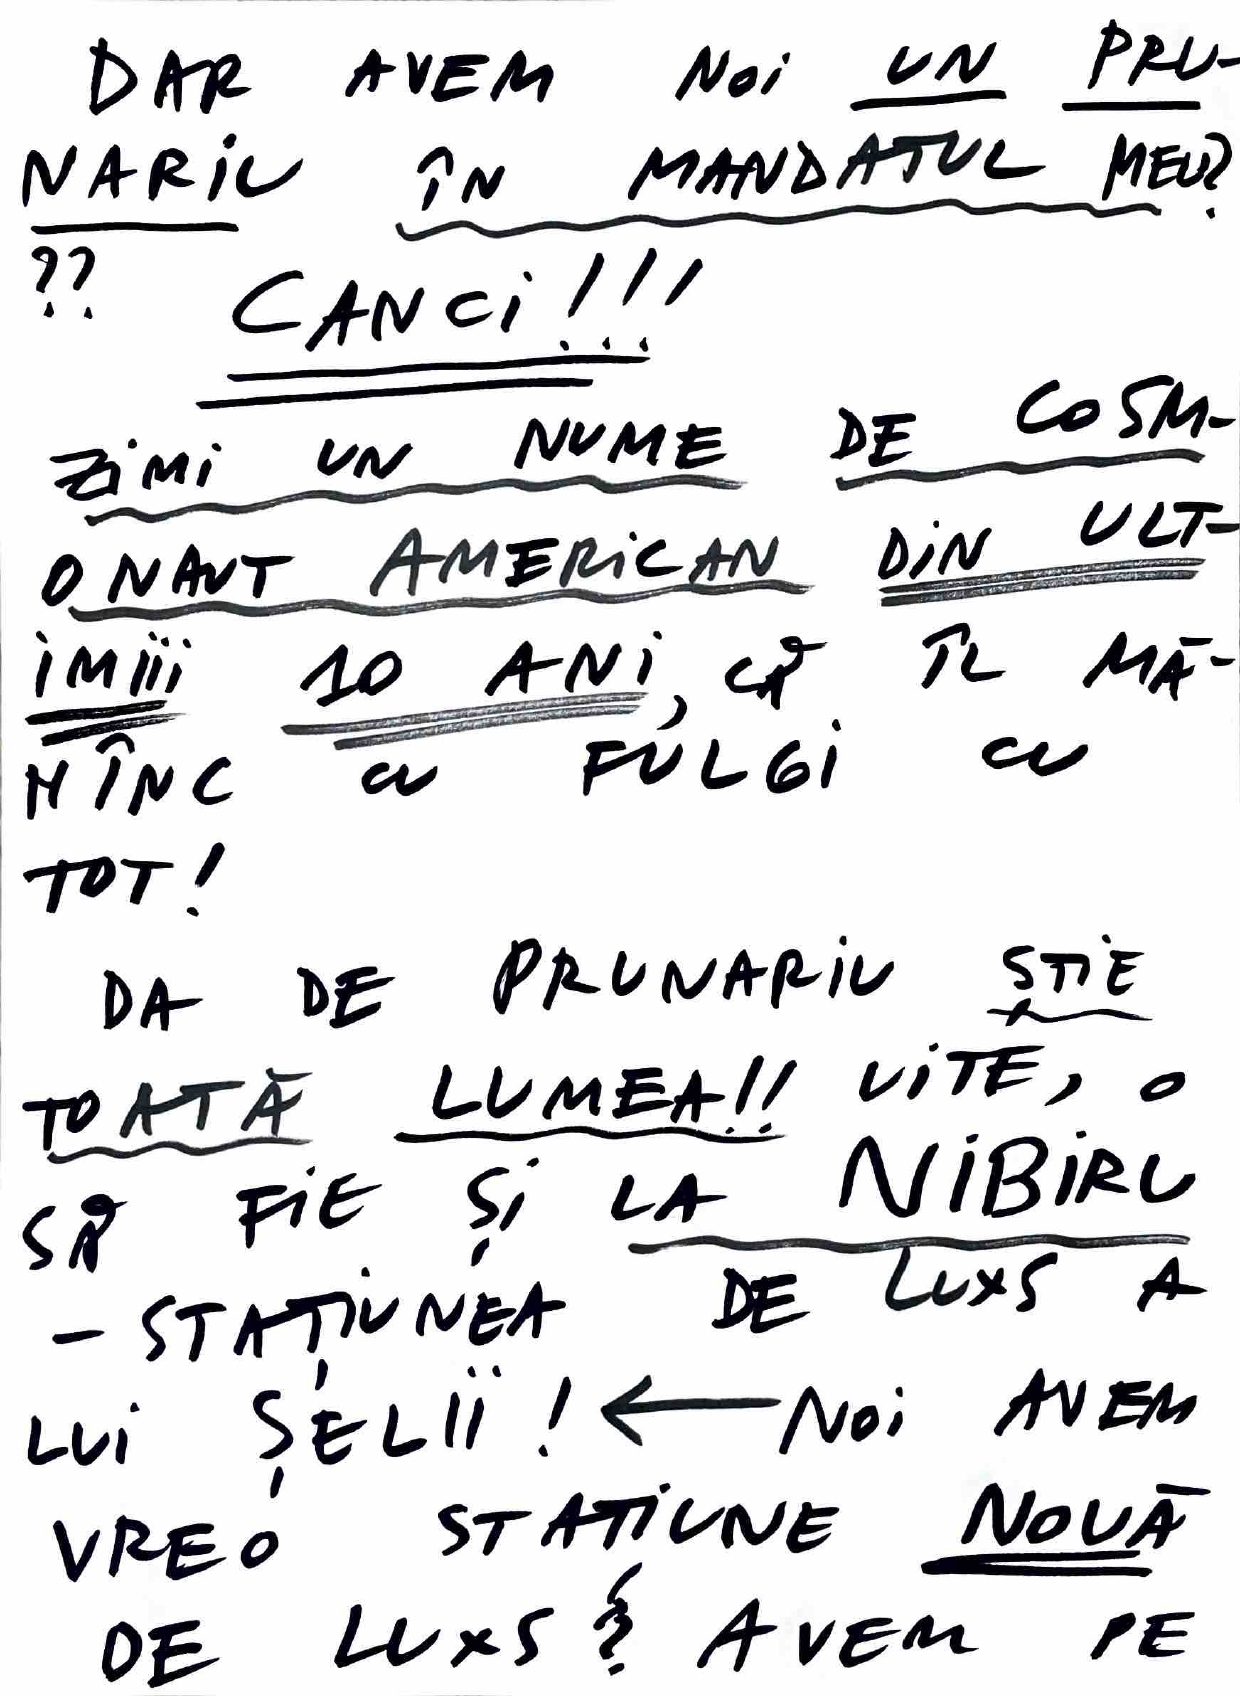 DAR AVEM NOI UN PRU-
NARIU ÎN MANDATUL MEU?
?? CANCI!!!
ZIMI UN NUME DE COSM-
ONAUT AMERICAN DIN ULT-
IMIII 10 ANI, CĂ ÎL MĂ-
NÎNC CU FULGI CU
TOT!
DA DE PRUNARIU ȘTIE
TOATĂ LUMEA!! UITE, O
SĂ FIE ȘI LA NIBIRU
- STAȚIUNEA DE LUXS A
LUI ȘELII! ← NOI AVEM
VREO STAȚIUNE NOUĂ
DE LUXS? AVEM PE